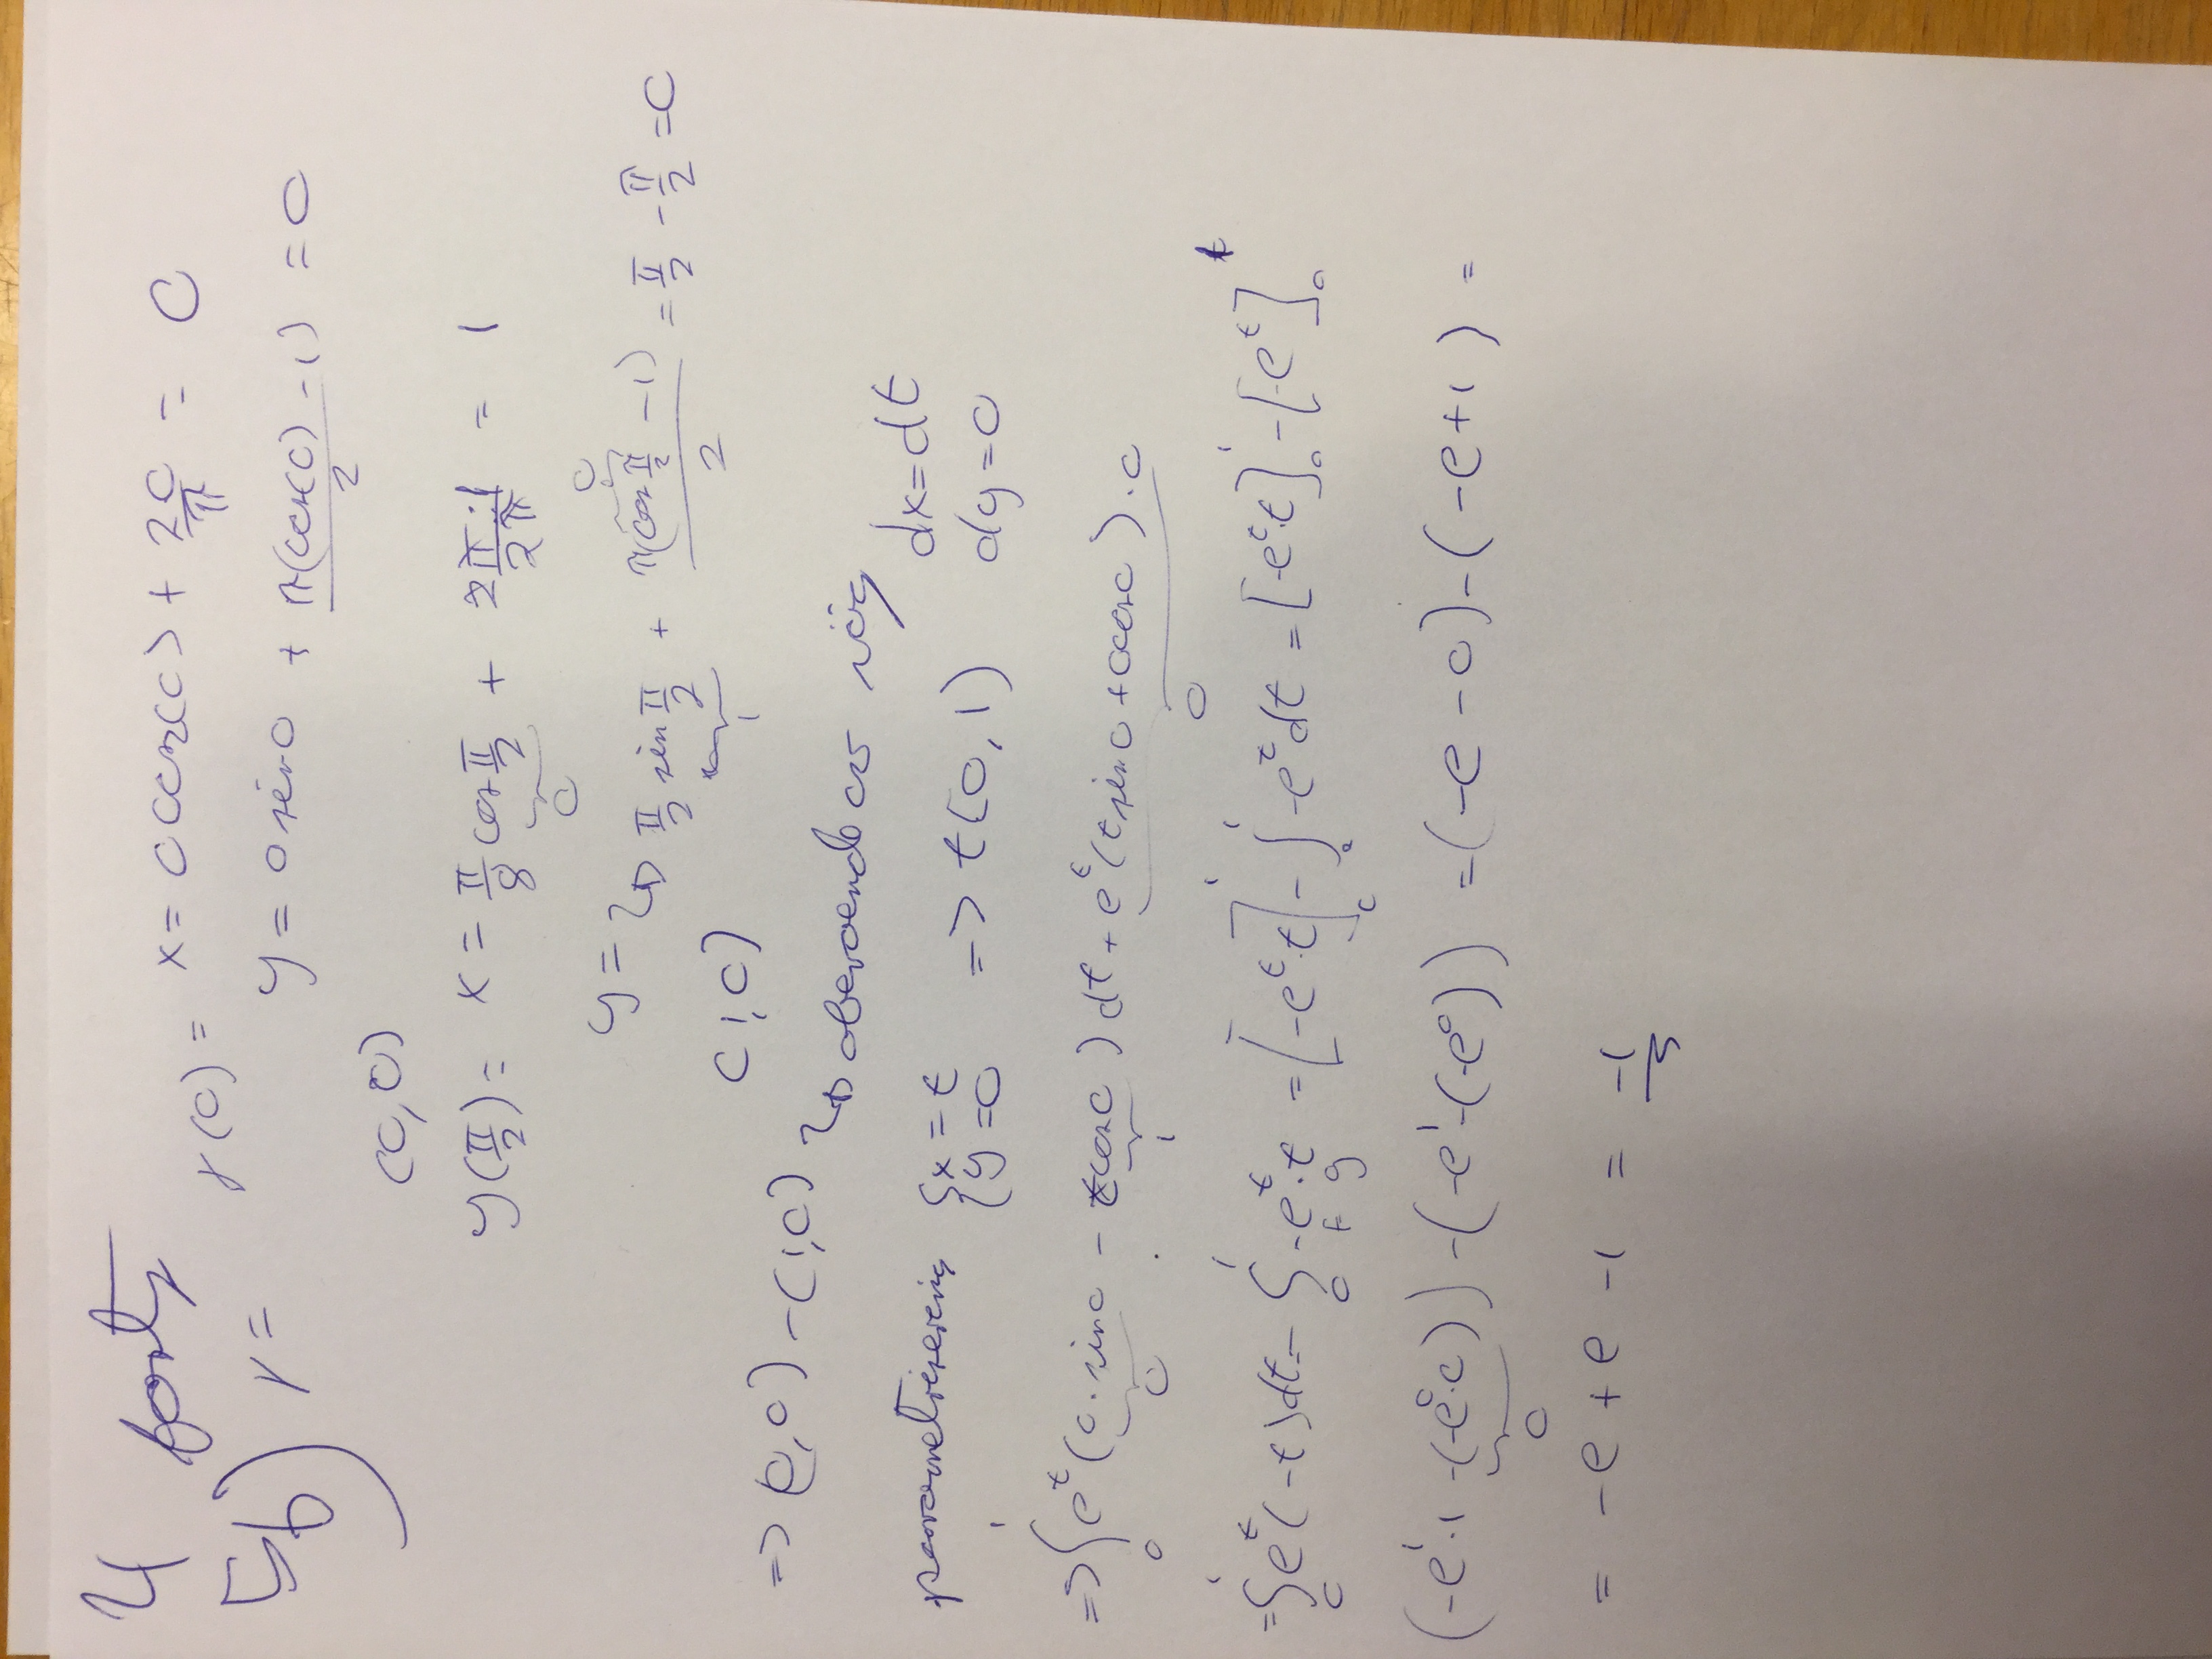 4 forts
5b) γ =
γ(0) = x = 0 cos(0) + 2·0/π = 0
y = 0 sin 0 + π(cos(0) - 1)/2 = 0
(0,0)
γ(π/2) = x = π/8 cos π/2 + 2π·1/2π = 1
0
y = π/2 sin π/2 + π(cos π/2 - 1)/2 = π/2 - π/2 = 0
1
0
(1,0)
=> (0,0) - (1,0)
oberoende av väg
parametrisering {x = t {y = 0 => t(0,1) dx = dt dy = 0
=> ∫₀¹ e^t (0·sin 0 - t cos 0) dt + e^t (t sin 0 + 0 cos 0)·0
0 1 0
= ∫₀¹ e^t (-t) dt = ∫₀¹ -e^t·t = [-e^t·t]₀¹ - ∫₀¹ -e^t dt = [-e^t·t]₀¹ - [-e^t]₀¹
F g
(-e¹·1 - (-e⁰·0)) - (-e¹ - (-e⁰)) = (-e - 0) - (-e + 1) =
0
= -e + e - 1 = -1